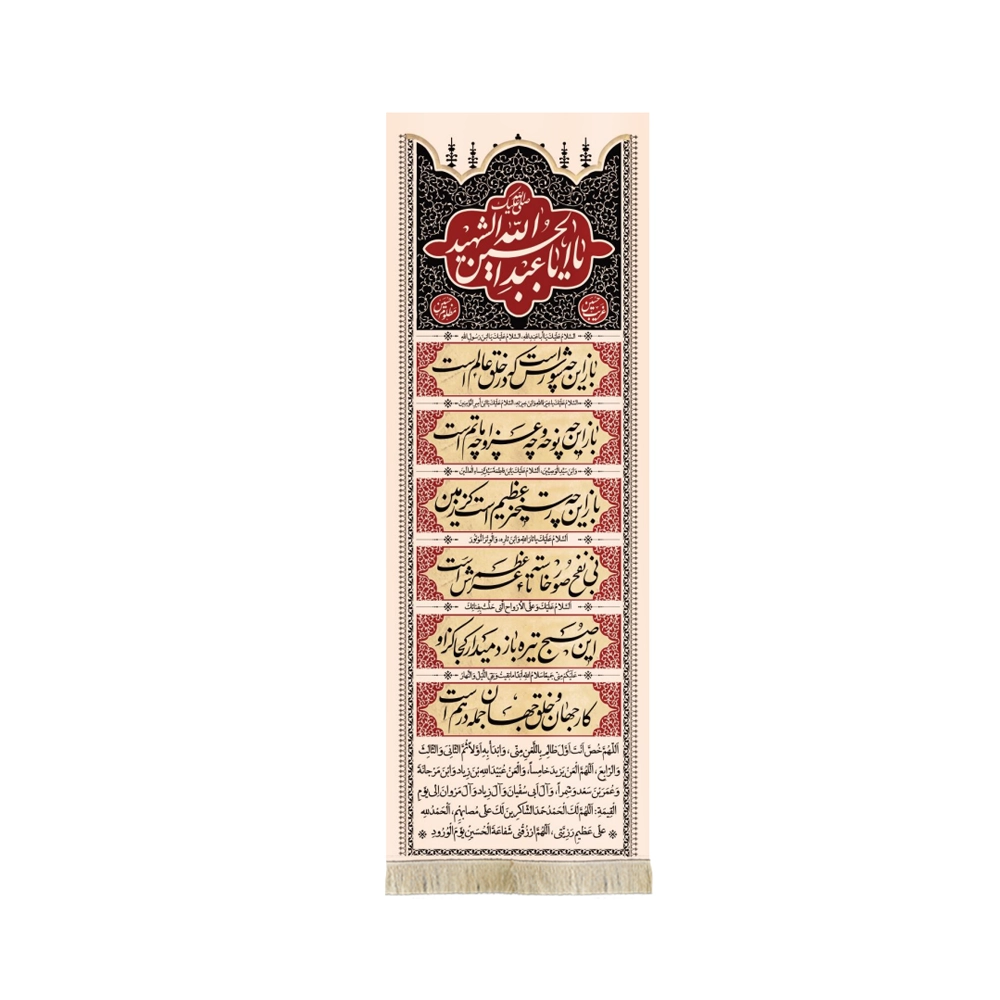 صلی الله علیک
یا ابا عبدالله الحسین الشهید
غریب حسین
مظلوم حسین
السلام علیک یا اباعبدالله، السلام علیک یابن رسول الله
باز این چه شورش است که در خلق عالم است
باز این چه نوحه و چه عزا و چه ماتم است
باز این چه رستخیز عظیم است کز زمین
السلام علیک یا ثارالله وابن ثاره، والوتر الموتور
بی نفخ صور خاسته تا عرش اعظم است
السلام علیک وعلی الارواح التی حلت بفنائک
این صبح تیره باز دمید از کجا کزو
علیکم منی جمیعا سلام الله ابدا ما بقیت وبقی اللیل والنهار
کار جهان و خلق جهان جمله درهم است
اللهم خص انت اول ظالم باللعن منی، وابدأ به اولا ثم الثانی والثالث
والرابع، اللهم العن یزید خامسا، والعن عبیدالله بن زیاد وابن مرجانة
وعمر بن سعد وشمرا، وآل ابی سفیان وآل زیاد وآل مروان الی یوم
القیمة: اللهم لک الحمد حمد الشاکرین لک علی مصابهم، الحمدلله
علی عظیم رزیتی، اللهم ارزقنی شفاعة الحسین یوم الورود